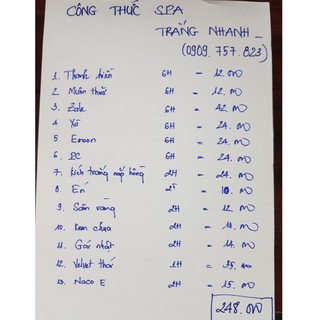 CÔNG THỨC SPA
TRẮNG NHANH -
(0909.757.823)
1. Thanh hiền 6H = 12.000
2. Miên thảo 6H = 12.000
3. Zoley 6H = 42.000
4. Xô 6H = 24.000
5. Eroson 6H = 24.000
6. PC 6H = 24.000
7. trắng nắp hồng 2H = 24.000
8. En 2 = 10.000
9. Sâm vàng 2H = 12.000
10. Kem chua 2H = 14.000
11. Gói nhật 2H = 14.000
12. Velvet thái 1H = 35.000
13. Naco E 2H = 15.000
248.000